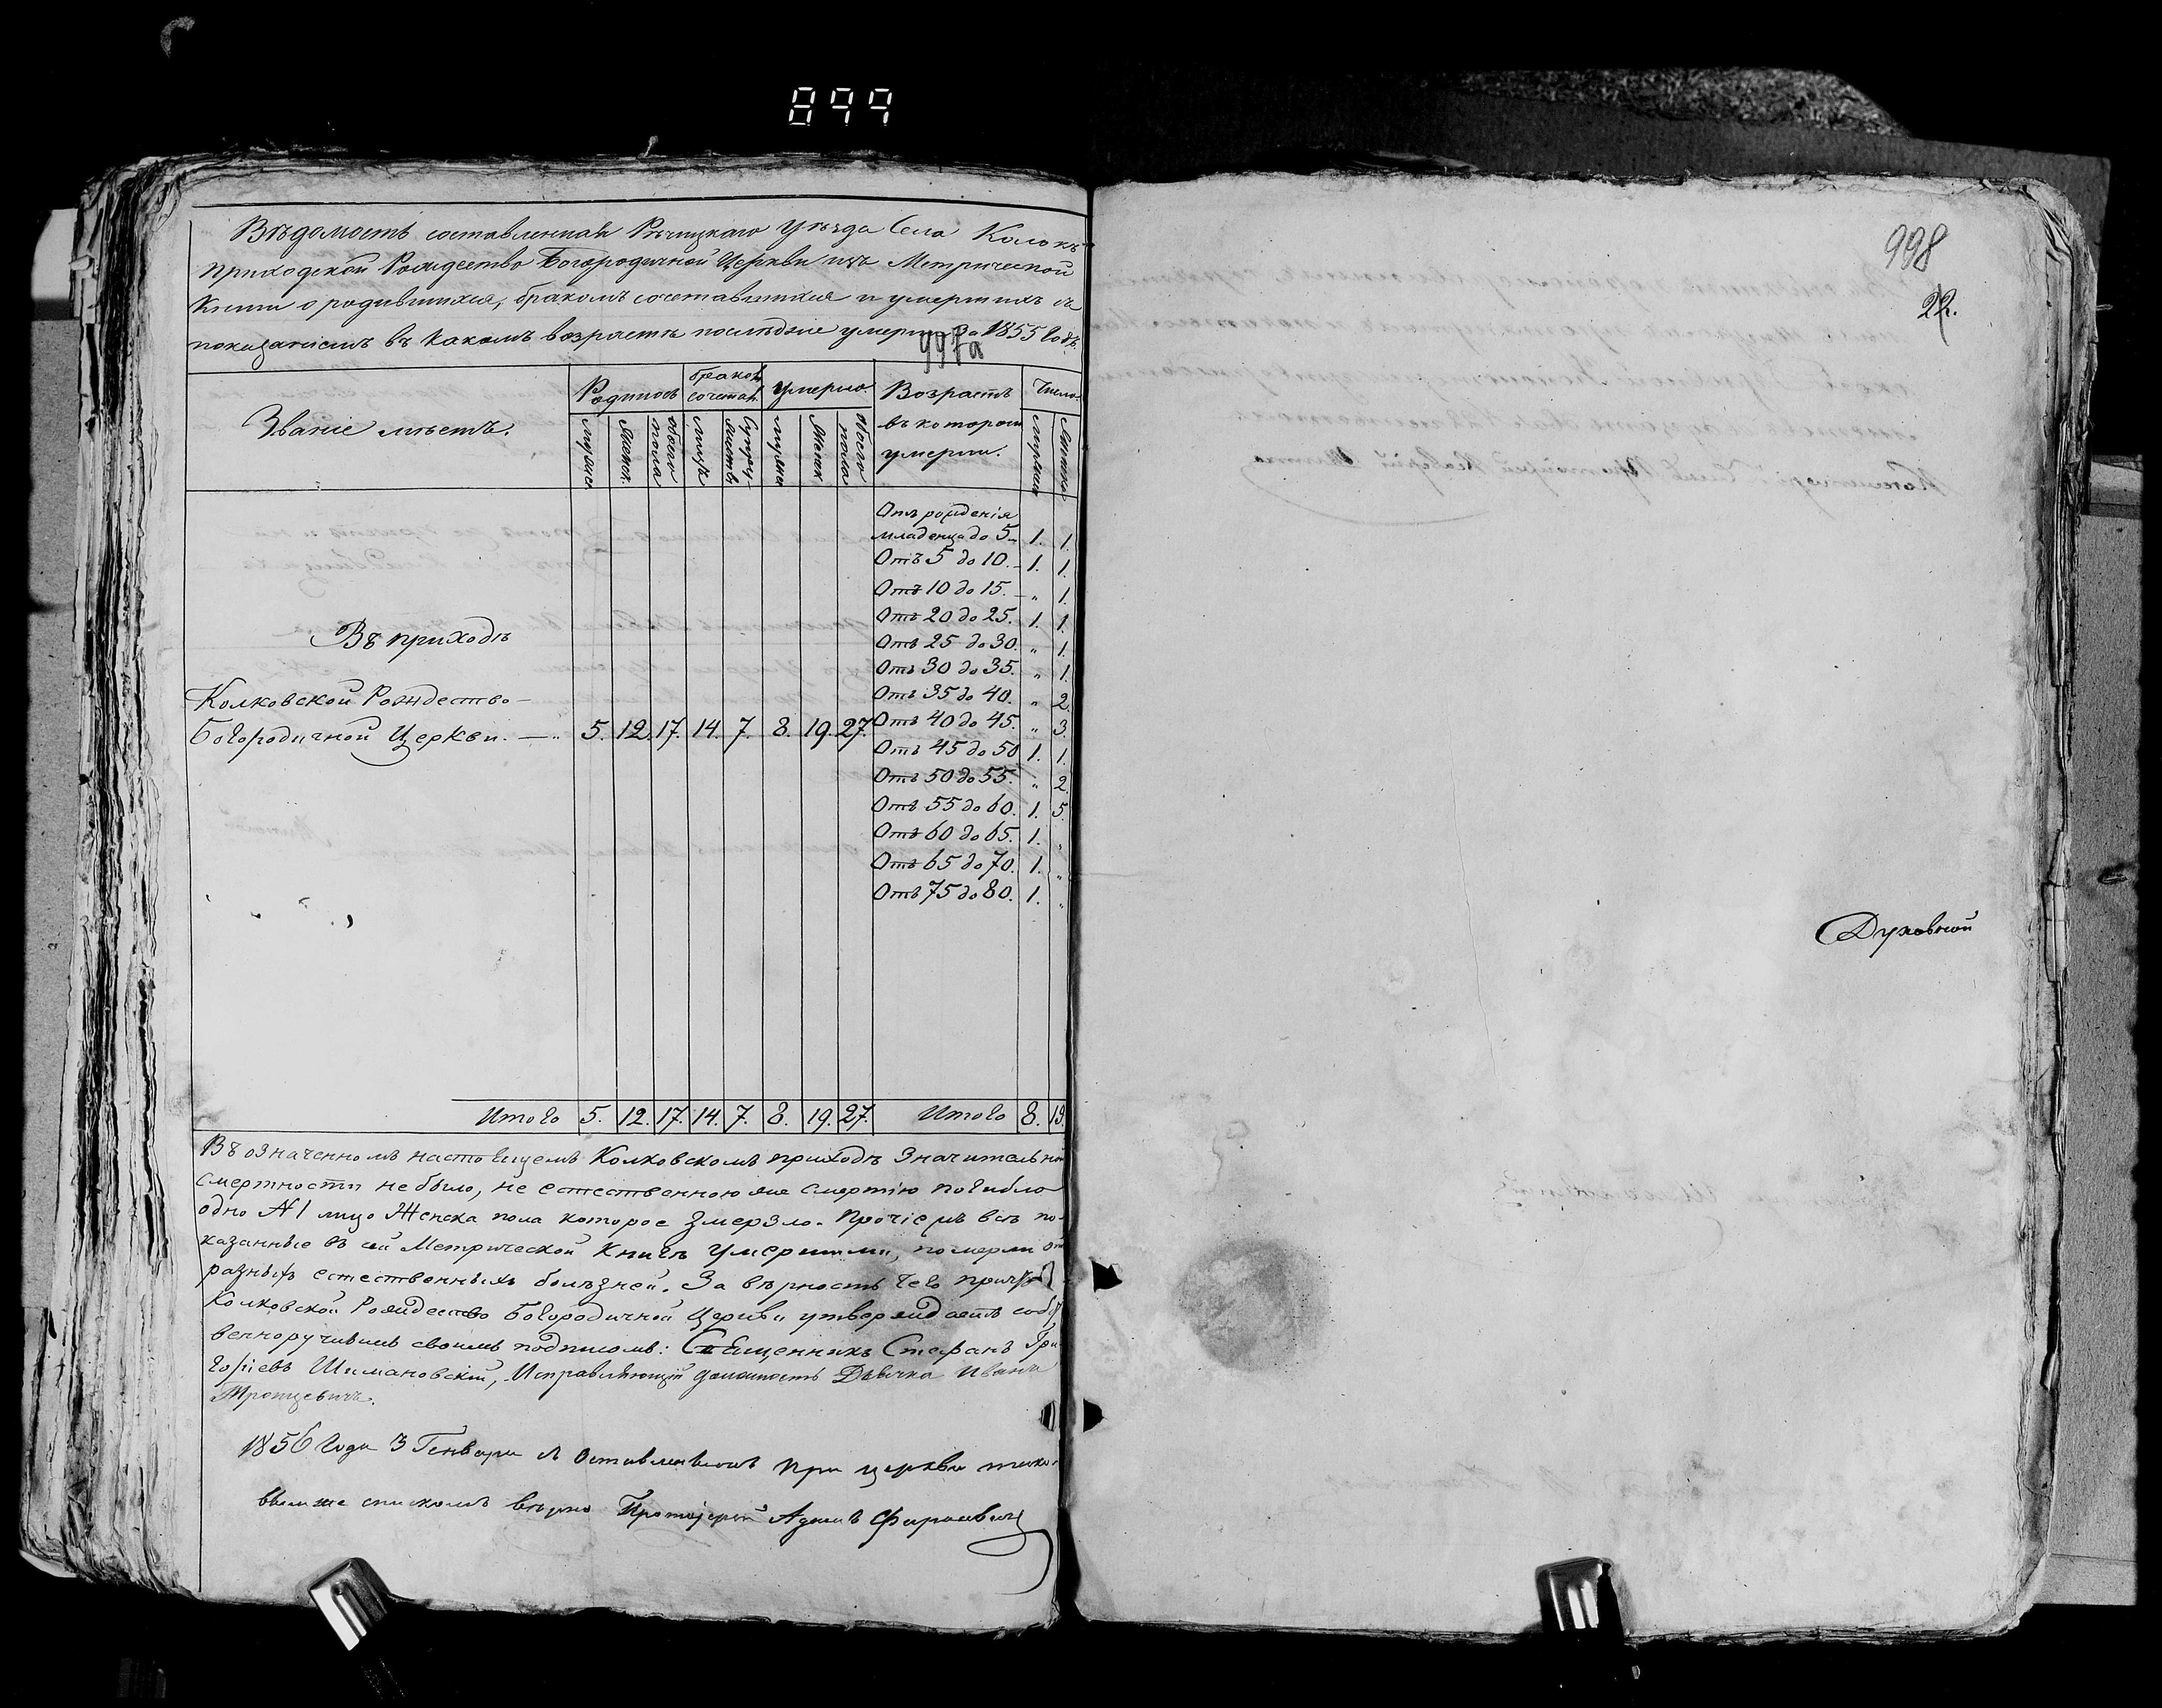 899
Вѣдомость составленная Рѣчицкаго Уѣзда Села Колокъ
приходской Рождество Богородичной Церкви изъ Метрической
Книги о родившихся, бракомъ сочетавшихся и умершихъ съ
показаніемъ въ какомъ возрастѣ послѣдніе умерли За 1855 годъ.
997а
Званіе мѣстъ.
Родилось
браковъ сочетан.
Умерло.
Возрастъ въ котором умерли.
Число.
мужес.
Женск.
обоего пола
лицъ
Супружествъ
мужеск
Женск
Обоего пола
мужеска
Женска
Отъ рожденія
младенца до 5 1. 1.
Отъ 5 до 10. 1. 1.
Отъ 10 до 15. „ 1.
Отъ 20 до 25. 1. 1.
Отъ 25 до 30. „ 1.
Отъ 30 до 35. „ 1.
Отъ 35 до 40. „ 2.
Отъ 40 до 45. „ 3.
Отъ 45 до 50 1. 1.
Отъ 50 до 55. „ 2.
Отъ 55 до 60. 1. 5.
Отъ 60 до 65. 1. „
Отъ 65 до 70. 1. „
Отъ 75 до 80. 1. „
Въ приходѣ
Колковской Рождество-
Богородичной Церкви. — „ 5. 12. 17. 14. 7. 8. 19. 27.
Итого 5. 12. 17. 14. 7. 8. 19. 27. Итого 8. 19.
Въ означенномъ настоящемъ Колковскомъ приходѣ Значительной
смертности не было, не естественною же смертію погибло
одно №1 лицо Женска пола которое Змерзло. Прочіе жъ всѣ по-
казанные въ сей Метрической Книгѣ Умершими, померли от
разныхъ естественныхъ болѣзней. За вѣрность чего причтъ
Колковской Рождество Богородичной Церкви утверждаетъ собст
венноручнымъ своимъ подписомъ: Священникъ Стефанъ Гри
горіевъ Шимановскій, Исправляющій должность Дьячка Иванъ
Троцевичъ.
1856 года 3 Генваря съ Оставленнымъ при церкви тако-
вымъ же спискомъ вѣрно Протоіерей Адамъ
998
22.
Духовной